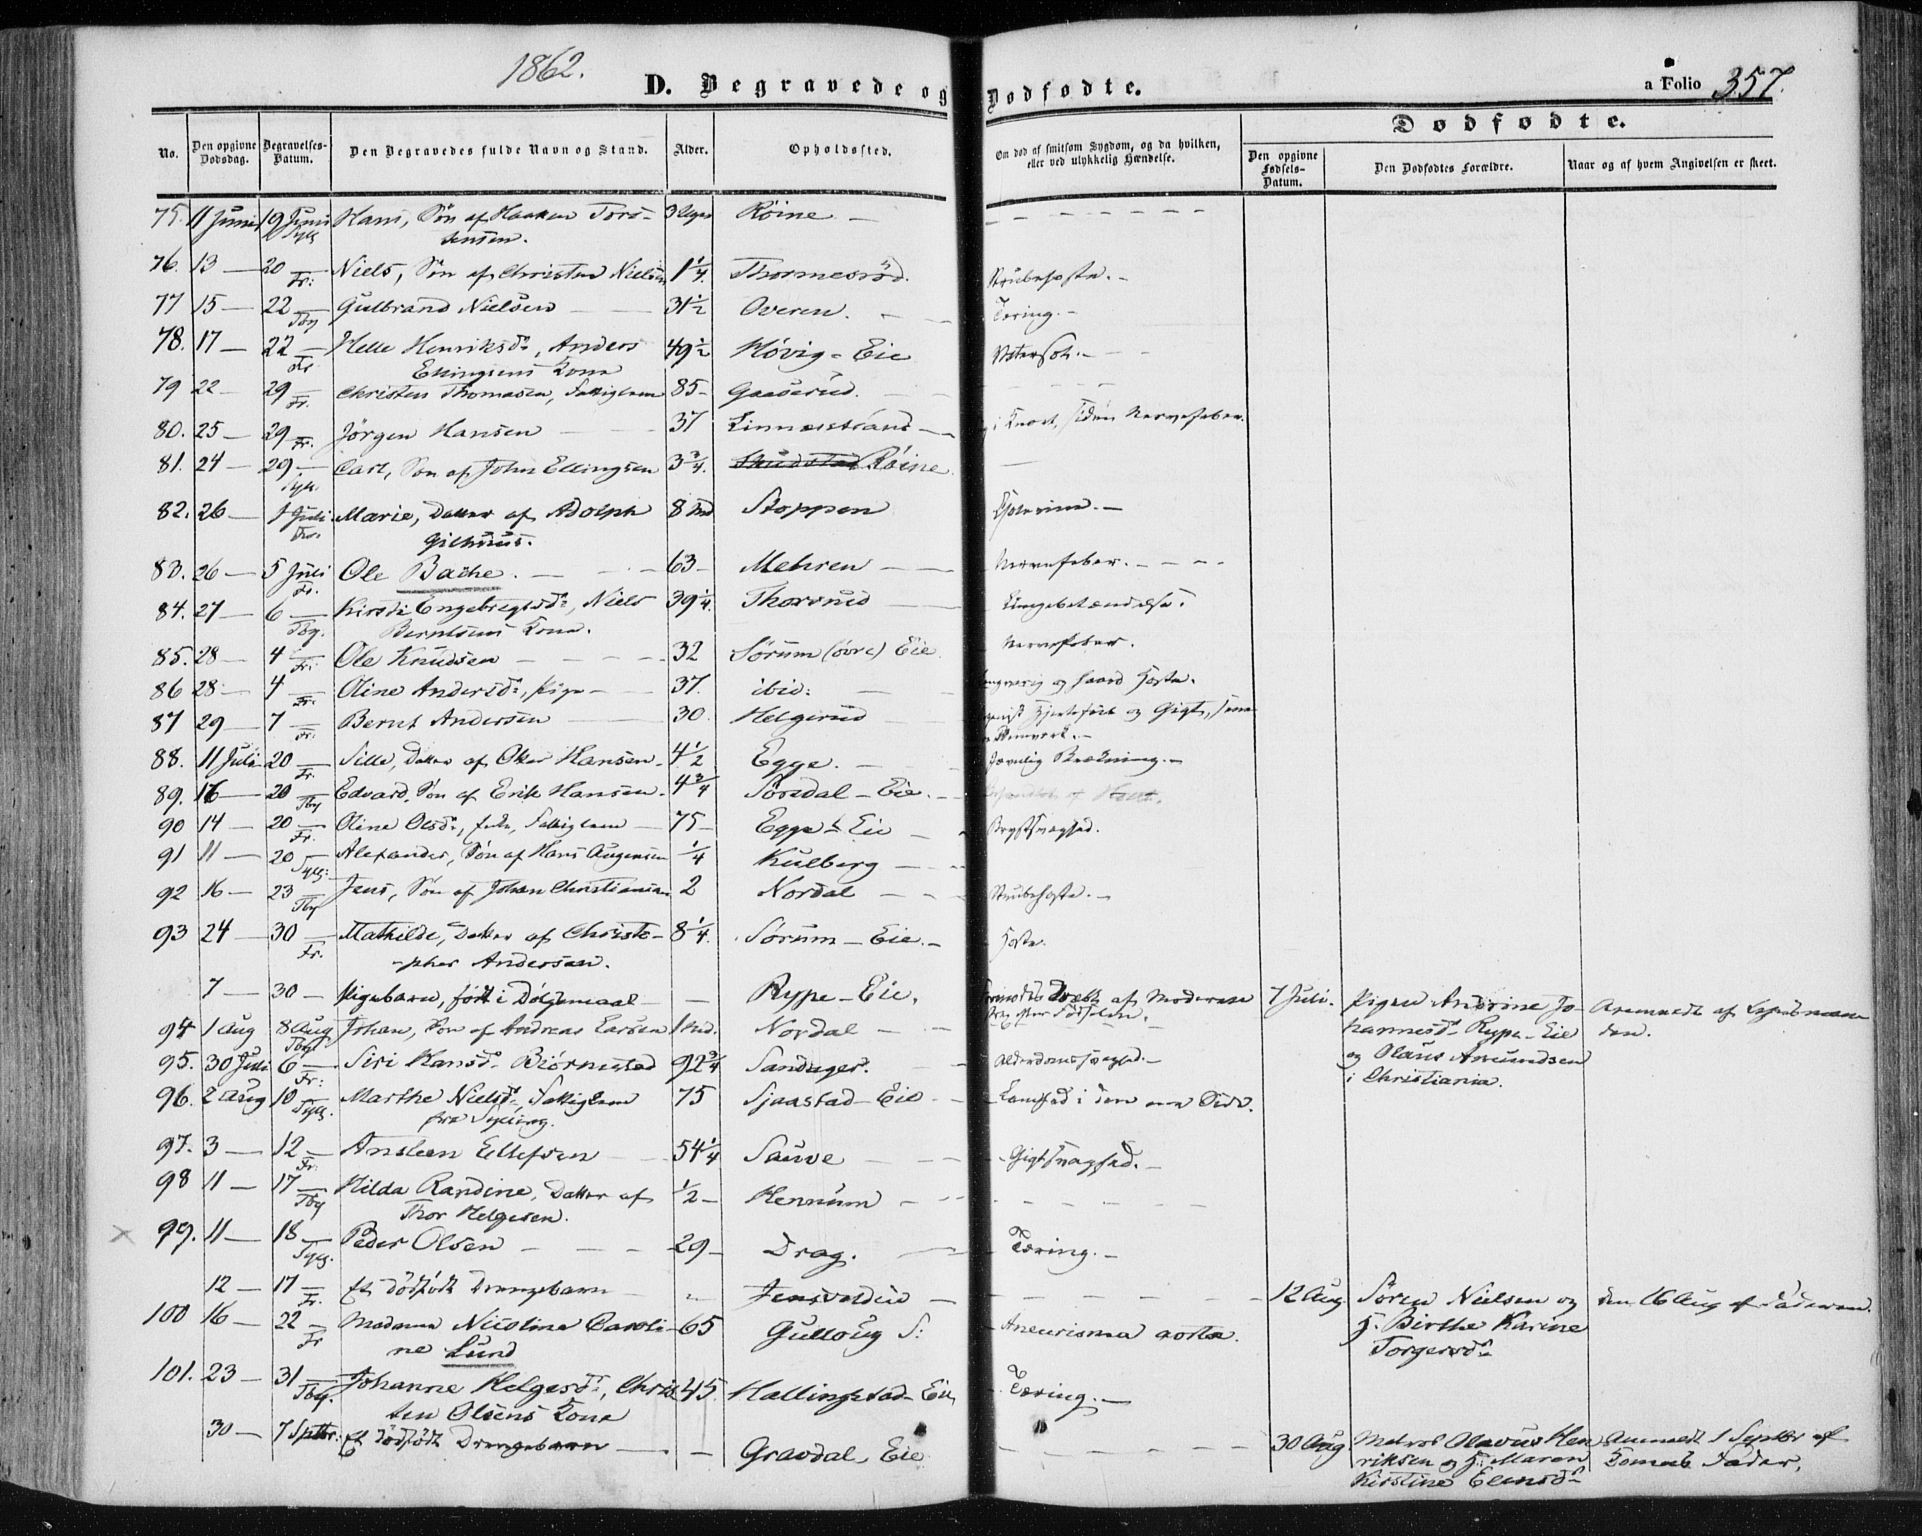 1862.
D. Begravede og Dødfødte.
a Folio 357.
Dødfødte.
No. Den opgivne Dødsdag. Begravelses-Datum. Den Begravedes fulde Navn og Stand. Alder. Opholdssted. Om død af smitsom Sygdom, og da hvilken, eller ved ulykkelig Hændelse. Den opgivne Fødsels-Datum. Den Dødfødtes Forældre. Naar og af hvem Angivelsen er skeet.
75. 11 Juni 19 Juni Hans, Søn af Haaken Tors- 3 Røine
tensen.
76. 13 — 20 — Fr: Niels, Søn af Christen Nielsen 1 1/4. Thormesrød. Strubehoste. —
77 15 — 22 — Tby Gulbrand Nielsen 31 1/2 Overen. Tæring. —
78. 17 — 22 — Fr Helle Henriksd:, Anders 49 1/2 Høvig - Eie Vatersot. —
Ellingsens Kone
79 22 — 29 — Fr. Christen Thomasen, Fattiglem 85 - Gaaserud.
80. 25 — 29 — Fr. Jörgen Hansen 37 Linnesstrand — siden Nervefeber.
81. 24 — 29 — Sylg. Carl, Søn af John Ellingsen 3 3/4. Skudstad Røine
82. 26 — 1 Juli Marie, Datter af Adolph 8 Md Stoppen Cholerine. —
Gilhuus.
83. 26 — 5 Juli Fr. Ole Bache. — 63 — Mehren — Nervefeber. —
84. 27 — 6 — Tby. Kirsti Engebregtsd:, Niels 39 1/4. Thorsrud Lungebetændelse.
Berntsens Kone.
85. 28 — 4 — Fr: Ole Knudsen 32 Sørum (øvre) Eie Nervefeber.
86 28 — 4 — Fr: Oline Andersd:, Pige — 37. ibid: og haard Hoste.
87 29 — 7 — Fr: Bernt Andersen 30. Helgerud Hjertefeil og Gigt,
88. 11 Juli 20 — Fr. Sille, Datter af Oker Hansen. 4 1/2 Egge. Jævnlig Brækning. —
89. 16 — 20 — Tby Edvard, Søn af Erik Hansen. 4 3/4 Sørsdal - Eie.
90 14 — 20 — Fr. Oline Olsd:, Enke, Fattiglem — 75 — Egge - Eie Brystsvaghed.
91 11 — 20 — Sylg: Alexander, Søn af Hans Augensen 1/4 Kulberg —
92 16 — 23 — Tby Jens, Søn af Johan Christiansen 2 Nordal Strubehoste. —
93 24 — 30 — Fr. Mathilde, Datter af Christo- 8 1/4. Sørum — Eie. — Hoste.
-pher Andersen.
7 — 30 — Pigebarn, født i Dølgsmaal — — Rype - Eie. af Moderen 7 Juli. Pigen Andrine Jo- Anmeldt af Lehnsman-
efter Fødselen. hannesd: Rype - Eie den.
94 1 Aug 8 Aug Tby Johan, Søn af Andreas Larsen 1 Md. Nordal —
og Olaus Amundsen
95. 30 Juli 6 — Fr: Siri Hansd: Biørnestad 92 3/4 Sandager. Alderdomssvaghed. —
i Christiania.
96. 2 Aug 10 — Sylg. Marthe Nielsd: Fattiglem 75 Sjaastad - Eie Lamhed i den ene Side.
fra Sylling.
97. 3 — 12 — Fr: Ansteen Ellefsen 54 1/4 Sauve Gigtsvaghed. —
98 11 — 17 — Tby Hilda Randine, Datter af 1/2 — Hennum —
Thor Helgesen.
99. 11 — 18 — Sylg. Peder Olsen — 29 — Drag. Tæring. —
12 — 17 — Fr. Et dødfødt Drengebarn Jensvolden — 12 Aug. Søren Nielsen og den 16 Aug af Faderen.
100 16 — 22 — Fr Madame Nicoline Caroli- 65 Gulloug S: Aneurisma aortæ. H. Birthe Karine
ne Lund Torgersd:
101. 23 — 31 — Tby. Johanne Helgesd:, Chris- 45. Hallingstad - Eie Tæring. —
ten Olsens Kone
30 — 7 Septbr: Et dødfødt Drengebarn — Gravdal, Eie 30 Aug Matros Olavus Hen Anmeldt 1 Septbr af
riksen og H: Maren Konens Fader.
Kirstine Eliasd: